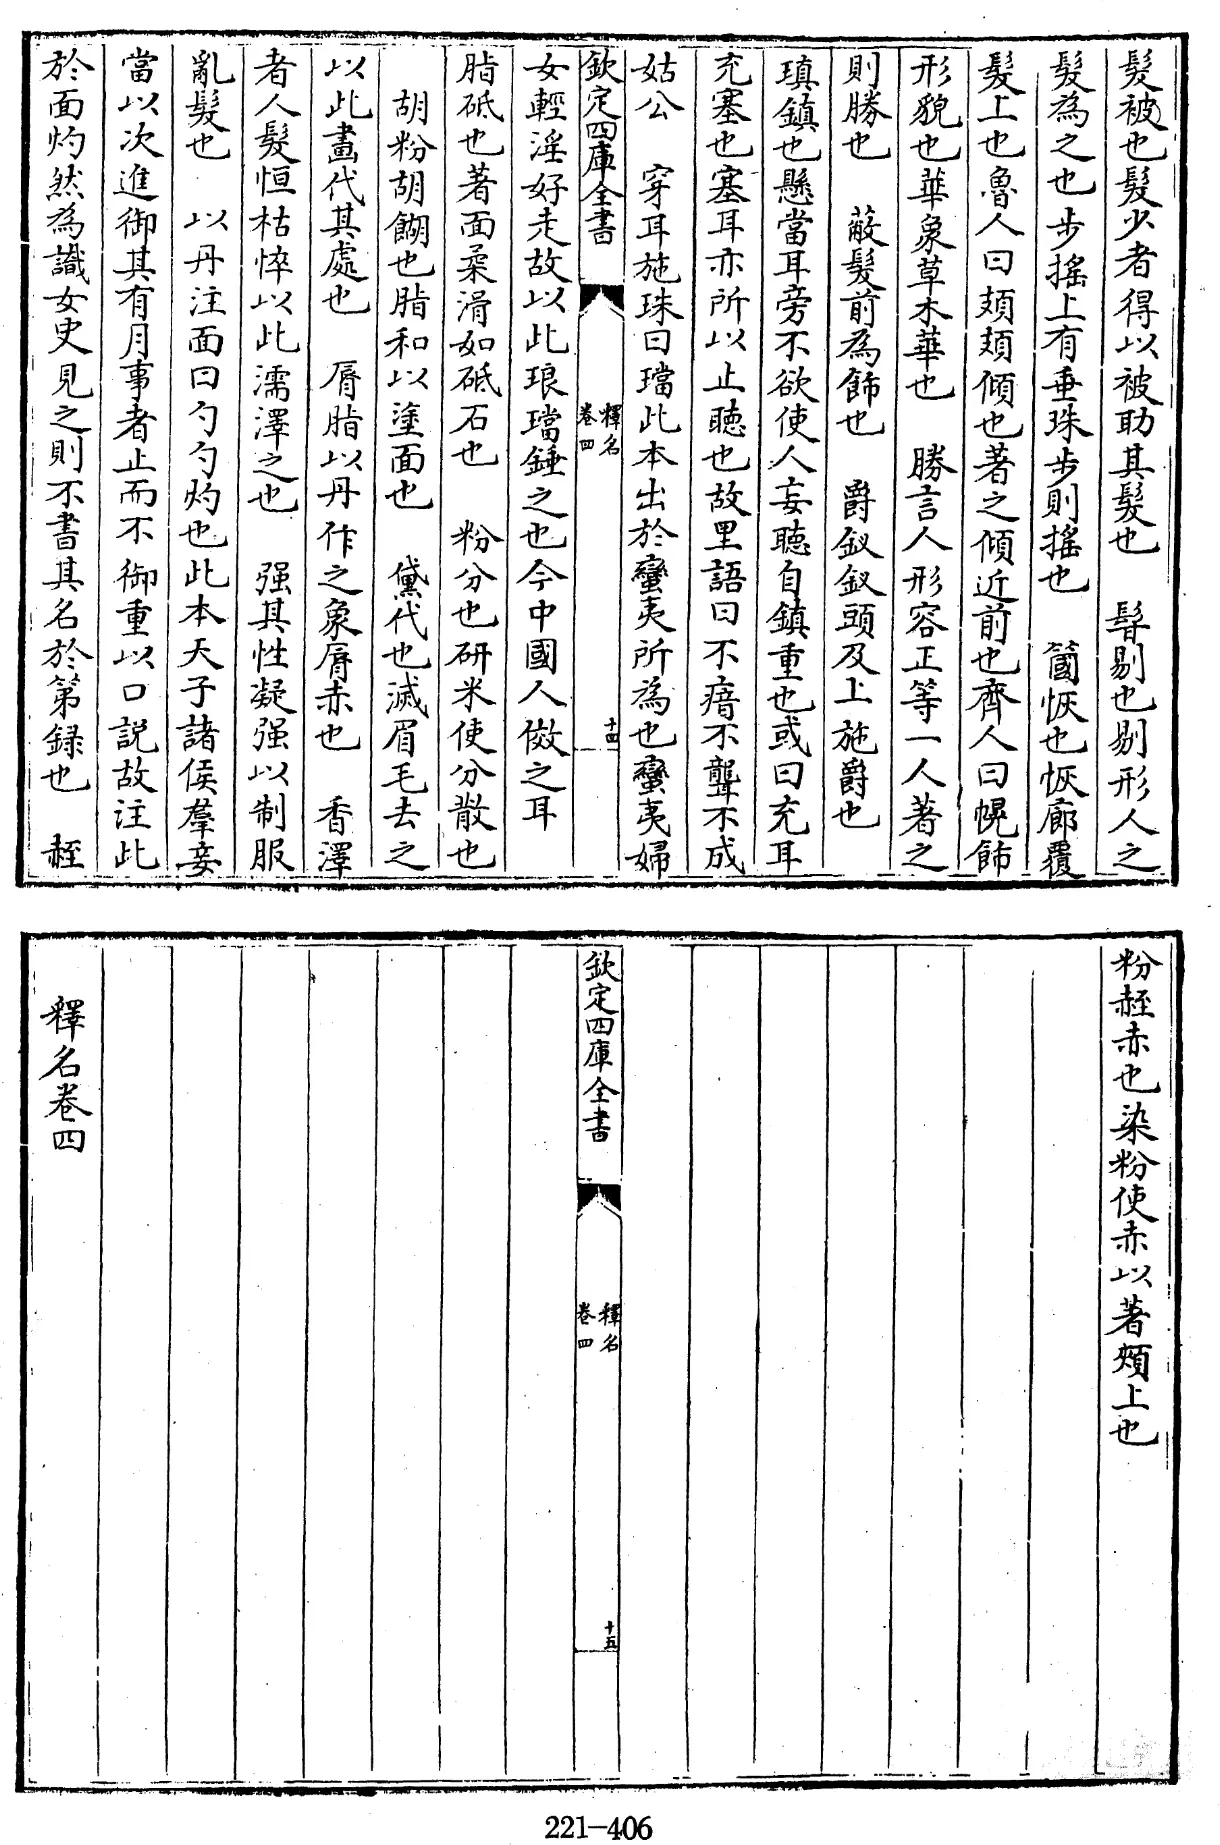 髲被也髮少者得以被助其髮也　髢剔也剔形人之
髮為之也步摇上有垂珠步則摇也　簂恢也恢廓覆
髮上也魯人曰頍頍傾也著之傾近前也齊人曰㡆飾
形貌也華象草木華也　勝言人形容正等一人著之
則勝也　蔽髮前為飾也　爵釵釵頭及上施爵也
瑱鎮也懸當耳旁不欲使人妄聽自鎮重也或曰充耳
充塞也塞耳亦所以止聽也故里語曰不瘖不聾不成
姑公　穿耳施珠曰璫此本出於蠻夷所為也蠻夷婦
欽定四庫全書
釋名
卷四
十四
女輕淫好走故以此琅璫錘之也今中國人傚之耳
脂砥也著面柔滑如砥石也　粉分也研米使分散也
胡粉胡餬也脂和以塗面也　黛代也滅眉毛去之
以此畫代其處也　脣脂以丹作之象脣赤也　香澤
者人髮恒枯悴以此濡澤之也　强其性凝强以制服
亂髮也　以丹注面曰勺勺灼也此本天子諸侯羣妾
當以次進御其有月事者止而不御重以口說故注此
於面灼然為識女史見之則不書其名於第録也　䞓
粉䞓赤也染粉使赤以著頰上也
欽定四庫全書
釋名
卷四
十五
釋名卷四
221-406